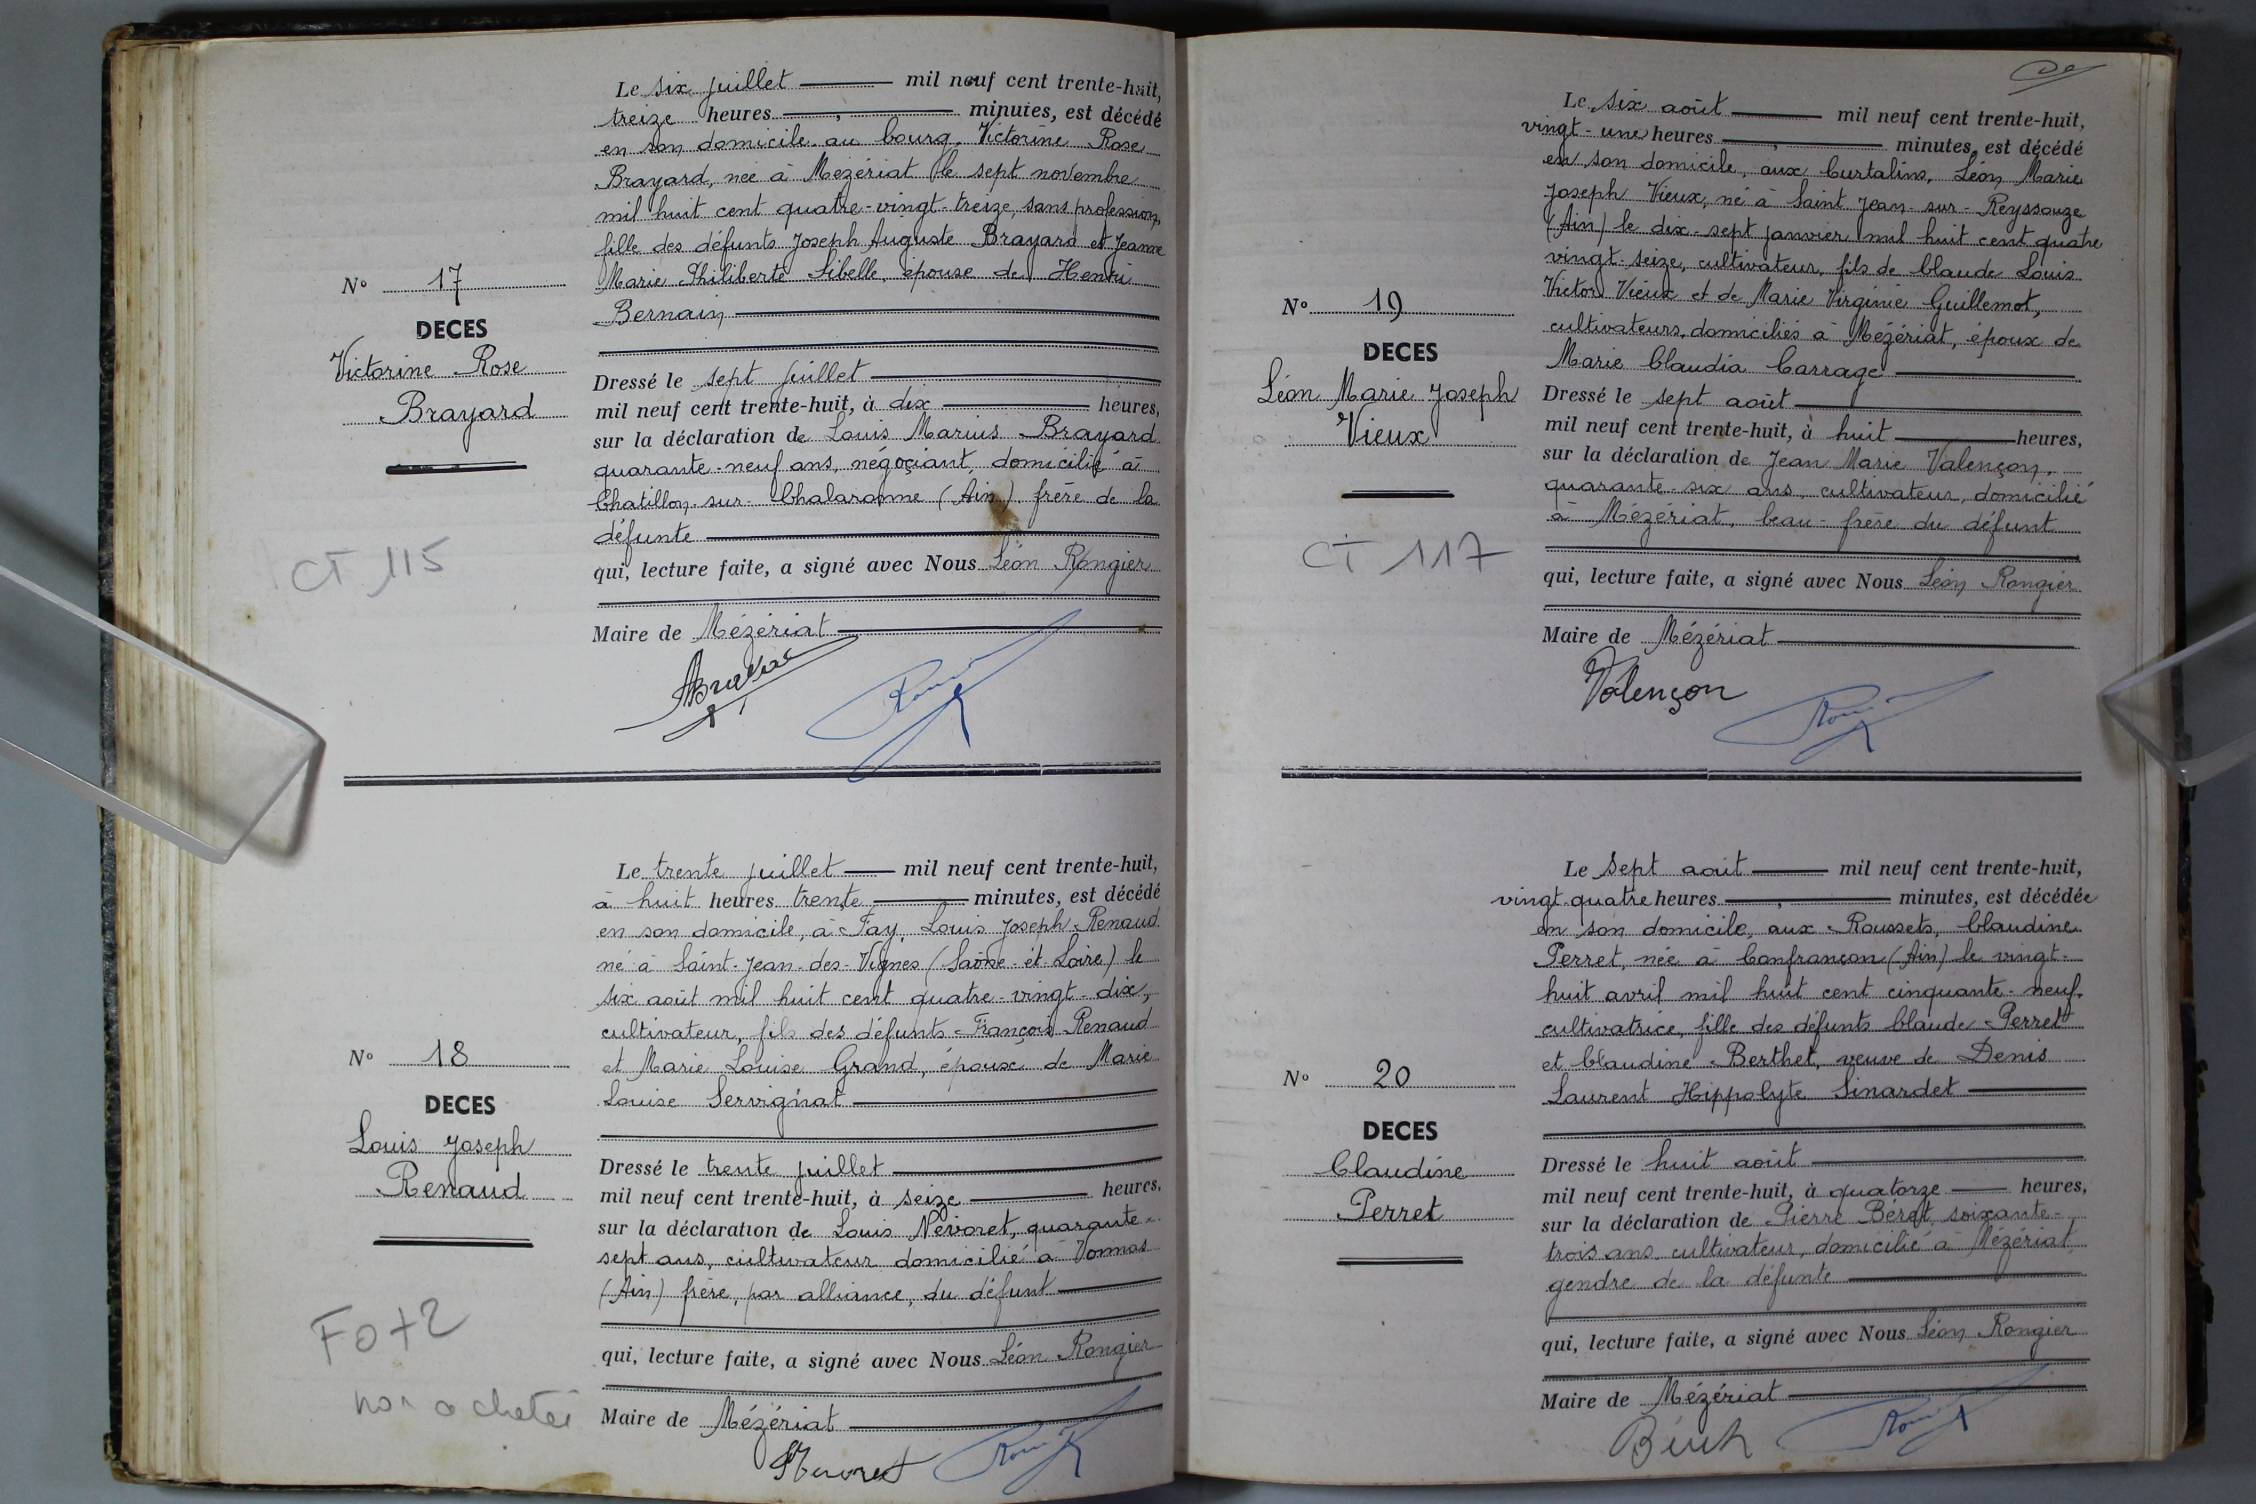 Le six juillet mil neuf cent trente-huit,
treize heures , minutes, est décédé
en son domicile au bourg, Victorine Rose
Brayard, née à Mézériat le sept novembre
mil huit cent quatre-vingt-treize, sans profession,
fille des défunts Joseph Auguste Brayard et Jeanne
Marie Philiberte Sibelle, épouse de Henri
Bernain
N° 17
DECES
Victorine Rose
Brayard
Dressé le sept juillet
mil neuf cent trente-huit, à dix heures,
sur la déclaration de Louis Marius Brayard
quarante-neuf ans, négociant, domicilié à
Chatillon-sur-Chalaronne (Ain) frère de la
défunte
CT 115
qui, lecture faite, a signé avec Nous Léon Rongier
Maire de Mézériat
Le trente juillet mil neuf cent trente-huit,
à huit heures trente minutes, est décédé
en son domicile, à Fay, Louis Joseph Renaud
né à Saint-Jean-des-Vignes (Saône-et-Loire) le
six août mil huit cent quatre-vingt-dix,
cultivateur, fils des défunts François Renaud
et Marie Louise Grand, époux de Marie
Louise Servignat
N° 18
DECES
Louis Joseph
Renaud
Dressé le trente juillet
mil neuf cent trente-huit, à seize heures,
sur la déclaration de Louis Nevoret, quarante-
sept ans, cultivateur domicilié à Vonnas
(Ain) frère, par alliance, du défunt
F0+2
non acheteé
qui, lecture faite, a signé avec Nous Léon Rongier
Maire de Mézériat
Nevoret
Le six août mil neuf cent trente-huit,
vingt-une heures , minutes, est décédé
en son domicile, aux Curtalins, Léon Marie
Joseph Vieux, né à Saint Jean-sur-Reyssouze
(Ain) le dix-sept janvier mil huit cent quatre
vingt-seize, cultivateur, fils de Claude Louis
Victor Vieux et de Marie Virginie Guillemot,
cultivateurs, domiciliés à Mézériat, époux de
Marie Claudia Carrage
N° 19
DECES
Léon Marie Joseph
Vieux
Dressé le sept août
mil neuf cent trente-huit, à huit heures,
sur la déclaration de Jean Marie Valençon,
quarante-six ans, cultivateur, domicilié
à Mézériat, beau-frère du défunt
CT 117
qui, lecture faite, a signé avec Nous Léon Rongier
Maire de Mézériat
Valençon
Le sept août mil neuf cent trente-huit,
vingt-quatre heures , minutes, est décédée
en son domicile, aux Roussets, Claudine
Perret, née à Confrançon (Ain) le vingt-
huit avril mil huit cent cinquante-neuf,
cultivatrice, fille des défunts Claude Perret
et Claudine Berthet, veuve de Denis
Laurent Hippolyte Sinardet
N° 20
DECES
Claudine
Perret
Dressé le huit août
mil neuf cent trente-huit, à quatorze heures,
sur la déclaration de Pierre soixante-
trois ans, cultivateur, domicilié à Mézériat
gendre de la défunte
qui, lecture faite, a signé avec Nous Léon Rongier
Maire de Mézériat